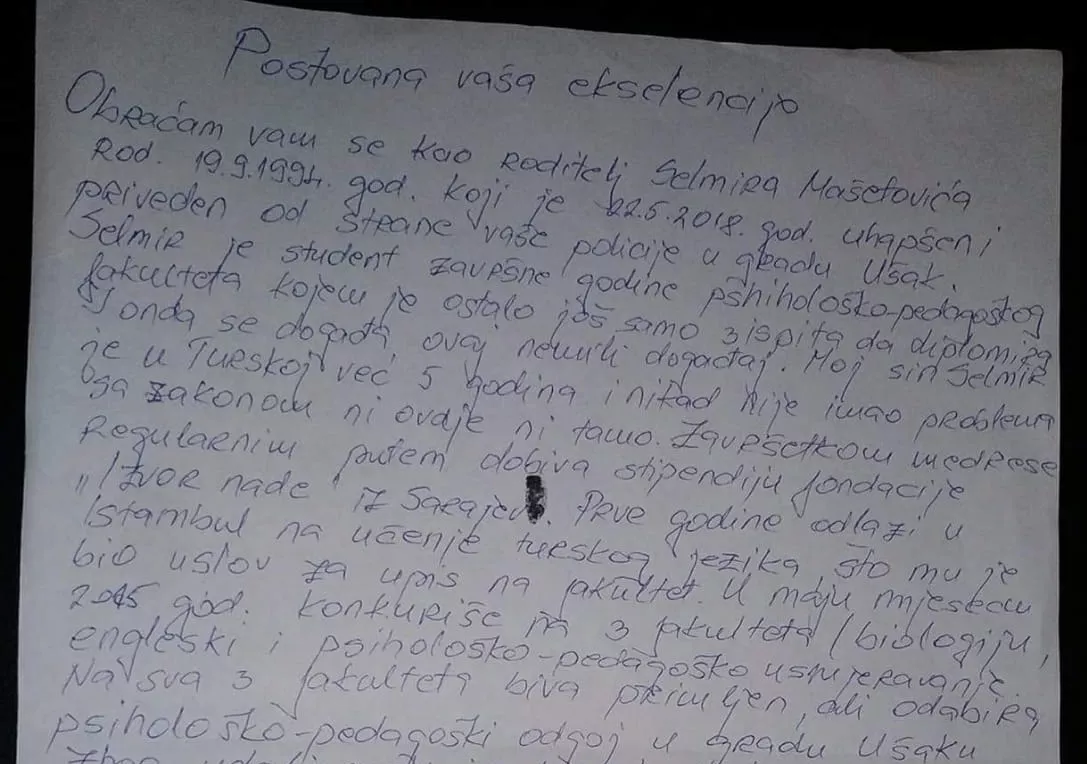 Poštovana vaša ekselencijo
Obraćam vam se kao roditelj Selmira Mašetovića
Rod. 19.9.1994. god. koji je 22.5.2018. god. uhapšen i
priveden od strane vaše policije u gradu Ušak.
Selmir je student završne godine pshihološko-pedagoškog
fakulteta kojem je ostalo još samo 3 ispita da diplomira
I onda se događa ovaj nemili događaj. Moj sin Selmir
je u Turskoj već 5 godina i nikad nije imao problema
sa zakonom ni ovdje ni tamo. Završetkom medrese
Regularnim putem dobiva stipendiju fondacije
"Izvor nade" iz Sarajeva. Prve godine odlazi u
Istambul na učenje turskog jezika što mu je
bio uslov za upis na fakultet. U maju mjesecu
2015 god. konkuriše na 3 fakulteta /biologiju,
engleski i psihološko-pedagoško usmjeravanje.
Na sva 3 fakulteta biva primljen, ali odabira
psihološko-pedagoški odgoj u gradu Ušaku
zbog